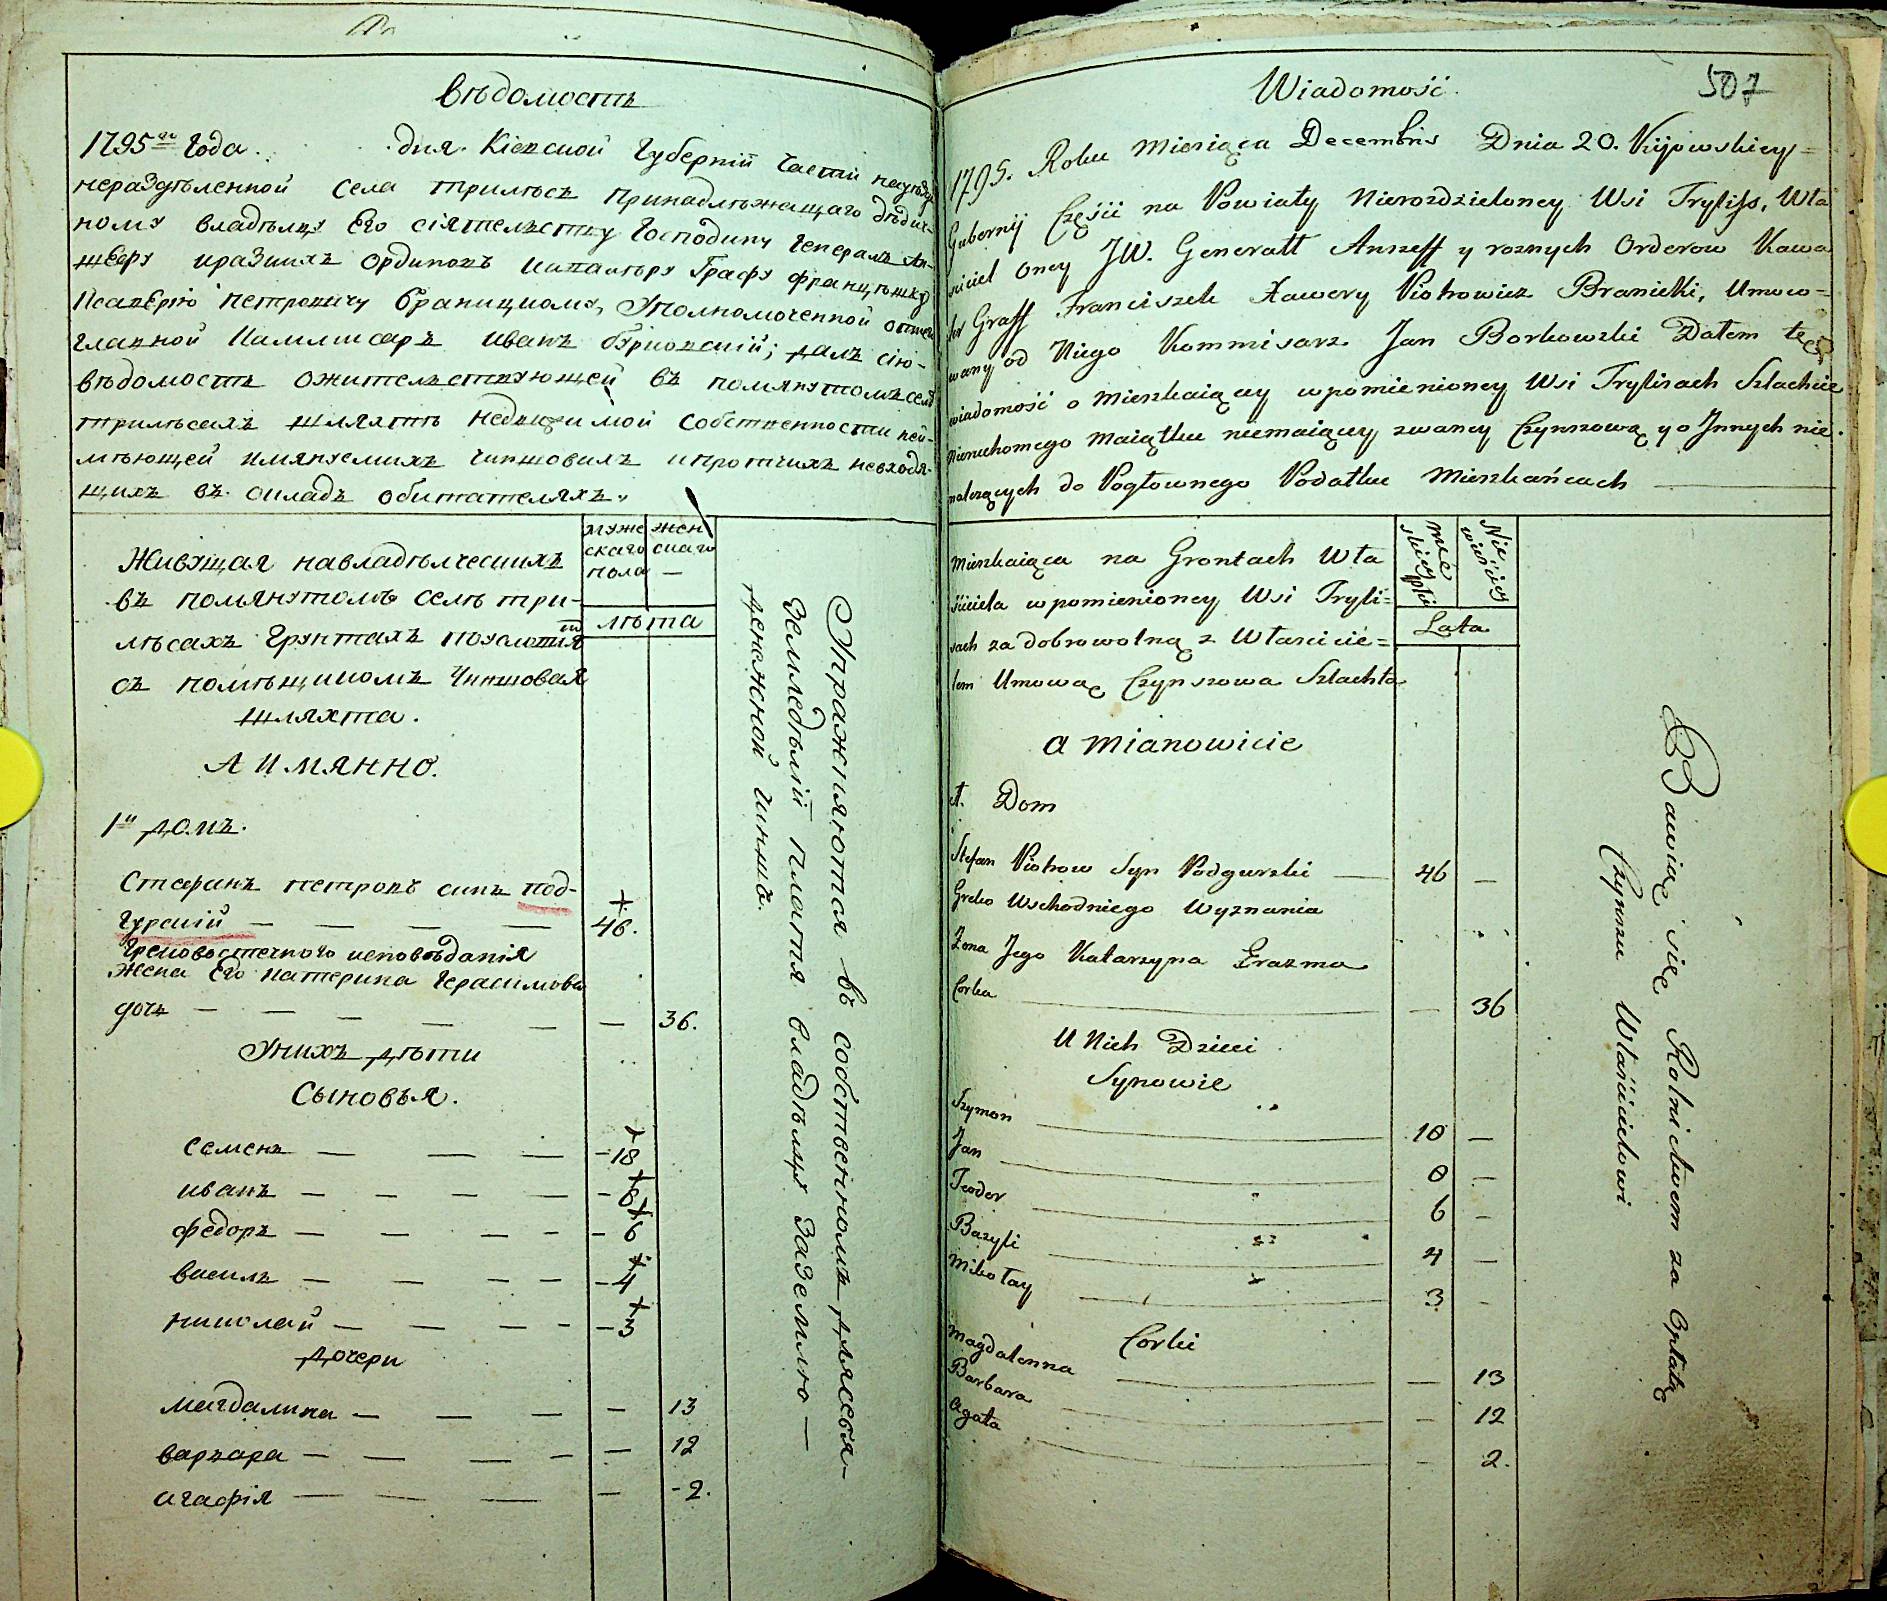 Вѣдомость
1795го Года. дня. Кіевской Губерніи части на уѣзды
нераздѣленной села Трилѣсъ принадлѣжащаго дѣдич-
ному владѣлцу Его сіятелству Господину Генералъ Ан-
шефу и разныхъ Ординовъ Кавалѣру Графу Францишку
Ксаверію Петровичу Браницкому, Уполномоченной отнего
главной Каммисаръ Иванъ Бурковскій; далъ сію-
вѣдомость ожителствующей въ помянутомъ селѣ
Трилѣсахъ шляхтѣ недвижимой собственности неи-
мѣющей имянуемихъ чиншовихъ ипротчихъ невходя-
щихъ въ окладъ обитателяхъ.
муже
скаго
пола
жен
скаго
—
лѣта
Живущая навладѣлческихъ
въ помянутомъ селѣ Три-
лѣсахъ Грунтахъ поусловію
съ помѣщикомъ Чиншовая
шляхта.
А имянно.
1й домъ.
Стефанъ Петровъ синъ Под-
гурскій — — — — 46.
Грековосточного исповѣданія
жена Его Катерина Герасимова
дочь — — — — — — 36.
Унихъ дѣти
Сыновья.
семенъ — — — -18
иванъ — — — — - 8
федоръ — — — — - 6
василъ — — — — -4
николай — — — - -3
дочери
магдалина — — — — 13
варвара — — — — — 12
агафія — — — — — -2.
Упражняются въ собственномъ длясебя-
земледѣліи платя владѣлцу заземлю —
денежной чиншъ.
Wiadomość.
507
1795. Roku Miesiąca Decembris Dnia 20. Kijowskiey=
Gubernij Części na Powiaty Nierozdzieloney Wsi Tryliss, Wła
sciciel oney JW. Generałł Anszeff y roznych Orderow Kawa
ler Graff Franciszek Xawery Piotrowicz Branicki, Umoco=
wany od Niego Kommisarz Jan Borkowski Dałem tę
wiadomość o Mieszkaiącey wpomienioney Wsi Trylisach Szlachcie
Nieruchomego Maiątku niemaiącey zwaney Czynszową y o Jnnych nie
nalezących do Pogłownego Podatku Mieszkańcach
Mę
skiey
płci
Nie
wieściey
Lata
Mieszkaiąca na Grontach Wła
ściciela wpomienioney Wsi Tryli=
sach za dobrowolną z Włascicie=
lem Umową Czynszowa Szlachta
a Mianowicie
1. Dom
Stefan Piotrow Syn Podgurski — 46 —
Greko Wschodniego Wyznania
Zona Jego Katarzyna Erazma
Corka — — 36
U Nich Dzieci
Synowie
Szymon — 18 —
Jan — 8 —
Teodor — 6 —
Bazyli — 4 —
Mikołay — 3 -
Corki
Magdalenna — — 13
Barbara — — 12
Agata — - 2.
Bawią się Rolnictwem za Opłatą
Czynszu Właścicielowi